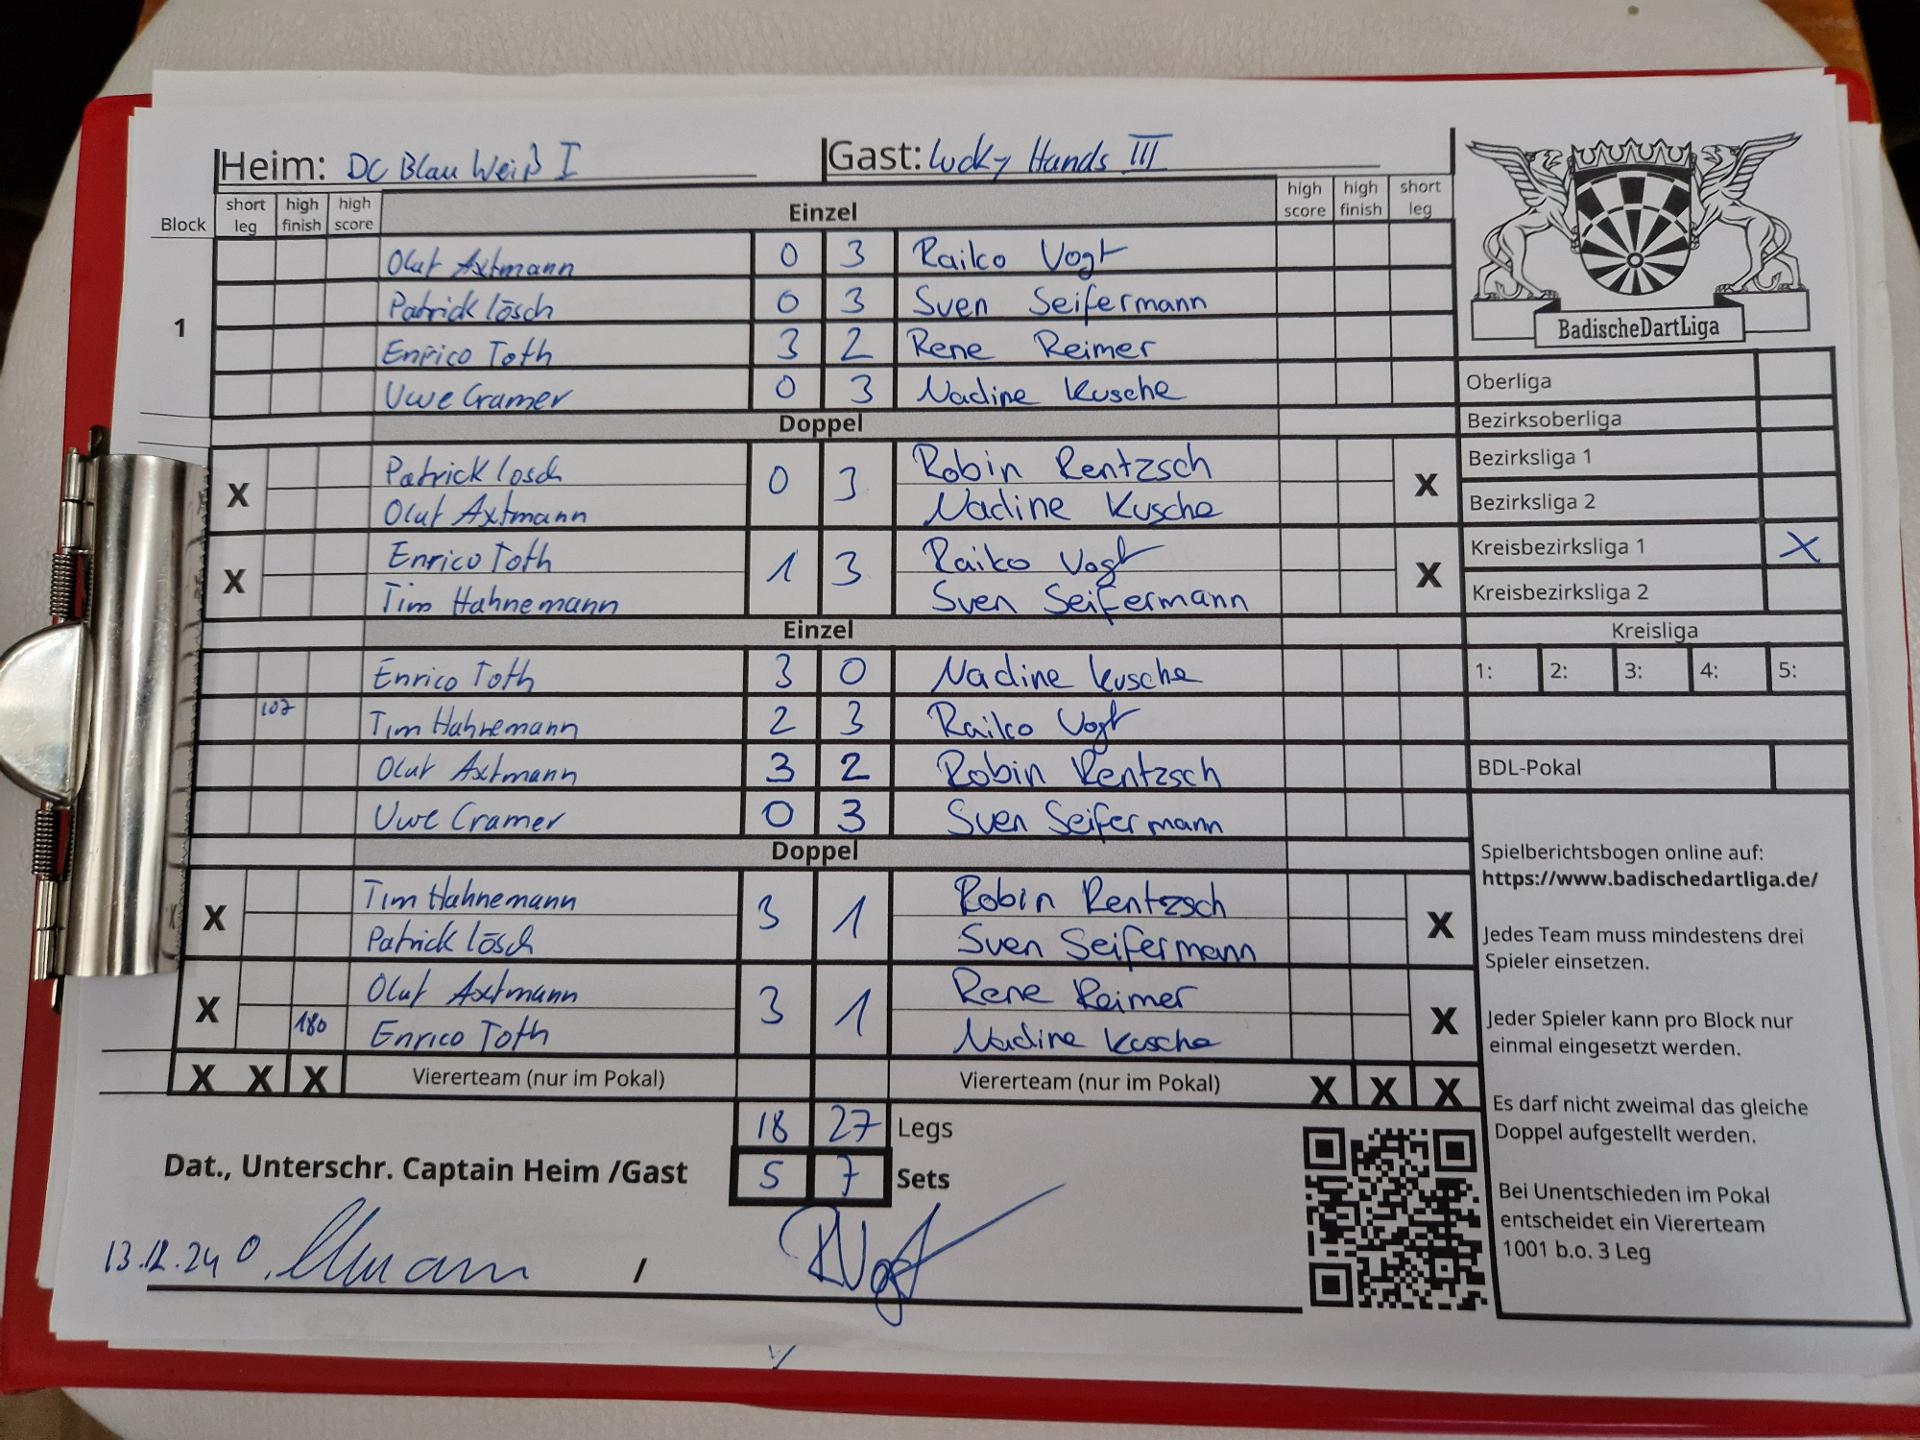 Heim: DC Blau Weiß I Gast: Lucky Hands III
Block short leg high finish high score Einzel high score high finish short leg
Oluf Axtmann 0 3 Raiko Vogt
Patrick lösch 0 3 Sven Seifermann
1
Enrico Toth 3 2 Rene Reimer
Uwe Cramer 0 3 Nadine Kusche
Doppel
Patrick losch Robin Rentzsch
X 0 3 X
Oluf Axtmann Nadine Kusche
Enrico Toth Raiko Vogt
X 1 3 X
Tim Hahnemann Sven Seifermann
Einzel
Enrico Toth 3 0 Nadine Kusche
107 Tim Hahnemann 2 3 Raiko Vogt
Oluf Axtmann 3 2 Robin Rentzsch
Uwe Cramer 0 3 Sven Seifermann
Doppel
Tim Hahnemann Robin Rentzsch
X 3 1 X
Patrick lösch Sven Seifermann
Oluf Axtmann Rene Reimer
X 3 1 X
180 Enrico Toth Nadine Kusche
X X X Viererteam (nur im Pokal) Viererteam (nur im Pokal) X X X
18 27 Legs
Dat., Unterschr. Captain Heim /Gast 5 7 Sets
13.12.24 /
BadischeDartLiga
Oberliga
Bezirksoberliga
Bezirksliga 1
Bezirksliga 2
Kreisbezirksliga 1 X
Kreisbezirksliga 2
Kreisliga
1: 2: 3: 4: 5:
BDL-Pokal
Spielberichtsbogen online auf:
https://www.badischedartliga.de/
Jedes Team muss mindestens drei
Spieler einsetzen.
Jeder Spieler kann pro Block nur
einmal eingesetzt werden.
Es darf nicht zweimal das gleiche
Doppel aufgestellt werden.
Bei Unentschieden im Pokal
entscheidet ein Viererteam
1001 b.o. 3 Leg